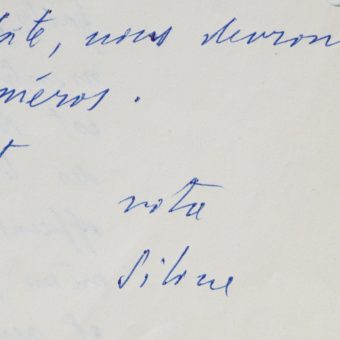 nous devron
méros.
votre
Silone